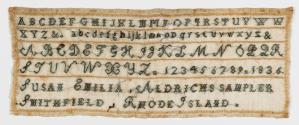 ABCDEFGHIJKLMNOPQRSTUVW
XYZ&. abcdefghijklmnopqrstuvwxyz&
ABCDEFGHIJKLMNOPQR
STUVWXYZ. 1234567891836.
SUSAN EMILIA, ALDRICHS SAMPLER
SMITHFIELD, RHODE ISLAND.